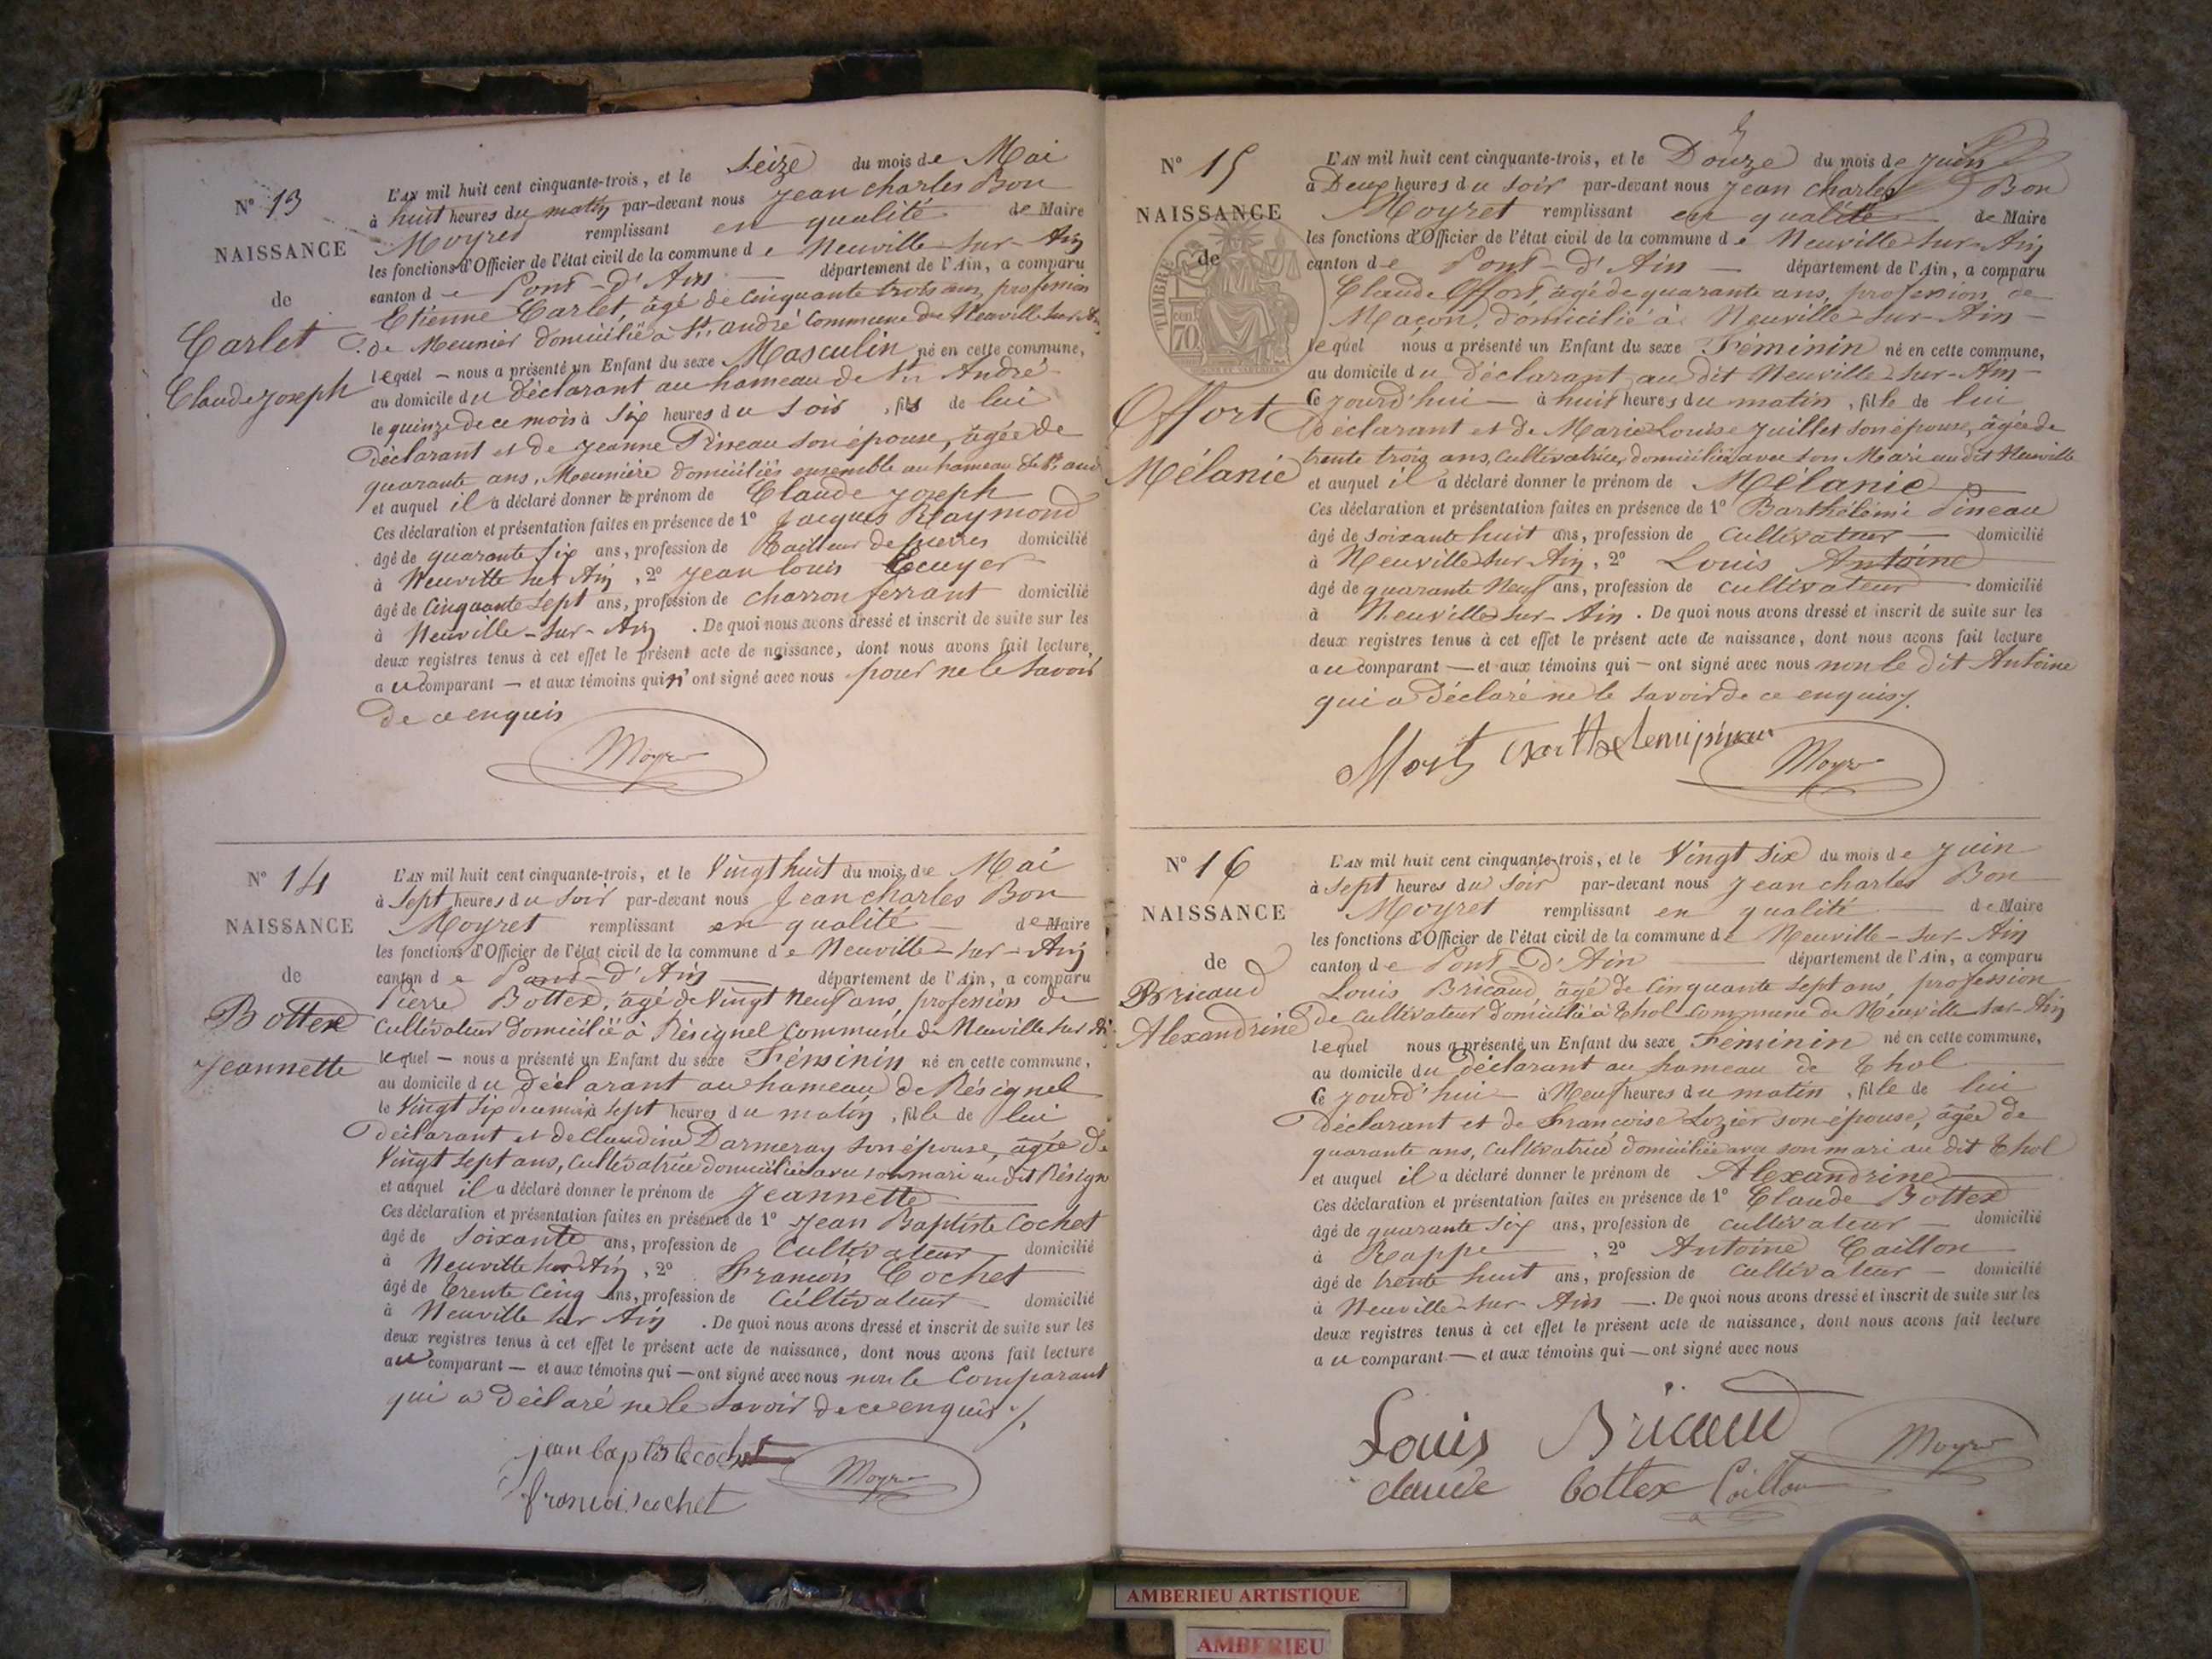 N° 13
NAISSANCE
de
Carlet
Claude Joseph
L'AN mil huit cent cinquante-trois, et le Seize du mois de Mai
à huit heures du matin par-devant nous Jean Charles Bon
Moyret remplissant en qualité de Maire
les fonctions d'Officier de l'état civil de la commune de Neuville-Sur-Ain
canton de Pont-d'Ain département de l'Ain, a comparu
Etienne Carlet, âgé de Cinquante trois ans, profession
de Meunier domicilié à St. André Commune de Neuville sur Ain
lequel – nous a présenté un Enfant du sexe Masculin né en cette commune,
au domicile du Déclarant au hameau de St. André
le quinze de ce mois à Six heures du Soir, fils de lui
Déclarant et de Jeanne Pineau son épouse, âgée de
quarante ans, Meunière domiciliés ensemble au hameau de St. and
et auquel il a déclaré donner le prénom de Claude Joseph
Ces déclaration et présentation faites en présence de 1° Jacques Raymond
âgé de quarante Six ans, profession de Tailleur de pierres domicilié
à Neuville sur Ain, 2° Jean Louis Ecuyer
âgé de Cinquante Sept ans, profession de Charron ferrant domicilié
à Neuville-Sur-Ain. De quoi nous avons dressé et inscrit de suite sur les
deux registres tenus à cet effet le présent acte de naissance, dont nous avons fait lecture,
au comparant – et aux témoins qui n'ont signé avec nous pour ne le Savoir
De ce enquis
Moyret
N° 14
NAISSANCE
de
Bottex
Jeannette
L'AN mil huit cent cinquante-trois, et le Vingt huit du mois de Mai
à Sept heures du Soir par-devant nous Jean Charles Bon
Moyret remplissant en qualité de Maire
les fonctions d'Officier de l'état civil de la commune de Neuville-Sur-Ain
canton de Pont-d'Ain département de l'Ain, a comparu
Pierre Bottex, âgé de Vingt Neuf ans, profession de
Cultivateur domicilié à Résignel Commune de Neuville sur Ain
lequel – nous a présenté un Enfant du sexe Féminin né en cette commune,
au domicile du Déclarant au hameau de Résignel
le Vingt Six de ce mois à Sept heures du matin, fille de lui
Déclarant et de Claudine Darmeray son épouse, âgée de
Vingt Sept ans, Cultivatrice domiciliée avec son mari au dit Résigne
et auquel il a déclaré donner le prénom de Jeannette
Ces déclaration et présentation faites en présence de 1° Jean Baptiste Cochet
âgé de Soixante ans, profession de Cultivateur domicilié
à Neuville sur Ain, 2° François Cochet
âgé de Trente Cinq ans, profession de Cultivateur domicilié
à Neuville Sur Ain. De quoi nous avons dressé et inscrit de suite sur les
deux registres tenus à cet effet le présent acte de naissance, dont nous avons fait lecture
au comparant – et aux témoins qui – ont signé avec nous non le Comparant
qui a Déclaré ne le Savoir de ce enquis /.
jean baptiste cochet
Moyret
francois cochet
N° 15
NAISSANCE
de
TIMBRE
cent
70
Offort
Mélanie
L'AN mil huit cent cinquante-trois, et le Douze du mois de Juin
à Deux heures du Soir par-devant nous Jean Charles Bon
Moyret remplissant en qualité de Maire
les fonctions d'Officier de l'état civil de la commune de Neuville-Sur-Ain
canton de Pont-d'Ain département de l'Ain, a comparu
Claude Offort, âgé de quarante ans, profession de
Maçon, domicilié à Neuville-Sur-Ain
lequel nous a présenté un Enfant du sexe Féminin né en cette commune,
au domicile du Déclarant au dit Neuville-Sur-Ain
Ce jourd'hui à huit heures du matin, fille de lui
Déclarant et de Marie Louise Juillet son épouse, âgée de
trente trois ans, Cultivatrice, domiciliée avec son Mari au dit Neuville
et auquel il a déclaré donner le prénom de Mélanie
Ces déclaration et présentation faites en présence de 1° Barthélémi Pineau
âgé de soixante huit ans, profession de Cultivateur domicilié
à Neuville sur Ain, 2° Louis Antoine
âgé de quarante Neuf ans, profession de Cultivateur domicilié
à Neuville sur-Ain. De quoi nous avons dressé et inscrit de suite sur les
deux registres tenus à cet effet le présent acte de naissance, dont nous avons fait lecture
au comparant – et aux témoins qui – ont signé avec nous non le dit Antoine
qui a Déclaré ne le savoir de ce enquis /.
Moyret
N° 16
NAISSANCE
de
Bricaud
Alexandrine
L'AN mil huit cent cinquante-trois, et le Vingt Six du mois de Juin
à Sept heures du Soir par-devant nous Jean Charles Bon
Moyret remplissant en qualité de Maire
les fonctions d'Officier de l'état civil de la commune de Neuville-Sur-Ain
canton de Pont-D'Ain département de l'Ain, a comparu
Louis Bricaud, âgé de Cinquante Sept ans, profession
De Cultivateur domicilié à Thol Commune de Neuville-Sur-Ain
lequel nous a présenté un Enfant du sexe Féminin né en cette commune,
au domicile du Déclarant au hameau de Thol
Ce jourd'hui à Neuf heures du matin, fille de lui
Déclarant et de Françoise Lozier son épouse, âgée de
quarante ans, Cultivatrice domiciliée avec son mari au dit Thol
et auquel il a déclaré donner le prénom de Alexandrine
Ces déclaration et présentation faites en présence de 1° Claude Bottex
âgé de quarante Six ans, profession de Cultivateur domicilié
à Rappe, 2° Antoine Caillon
âgé de trente huit ans, profession de Cultivateur domicilié
à Neuville-sur-Ain. De quoi nous avons dressé et inscrit de suite sur les
deux registres tenus à cet effet le présent acte de naissance, dont nous avons fait lecture
au comparant – et aux témoins qui – ont signé avec nous
Louis Bricaud
Moyret
claude bottex Caillon
AMBERIEU ARTISTIQUE
AMBERIEU